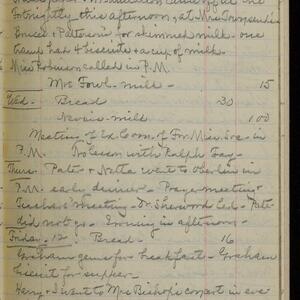 fortnightly this afternoon, at Mrs
Bruce & Patterson for skimmed milk - one
hand had 4 biscuits & a cup of milk
Miss Robinson called in P.M.
Mrs Fowl. milk - 15
Wed. Bread 30
milk 1 00
Meeting of Ex. Com. of For. Miss. Soc - in
P.M. No lesson with Ralph Fay -
Thurs. Pate & Netta went to Oberlin in
P.M. early dinner - Prayer meeting &
Teachers Meeting - Dr. Sherwood led - Pate
did not go - Ironing in afternoon -
Friday - 12. Bread - 16
Graham gems for breakfast - Graham
biscuit for supper -
Harry & I went to Mrs Bishop's concert in eve